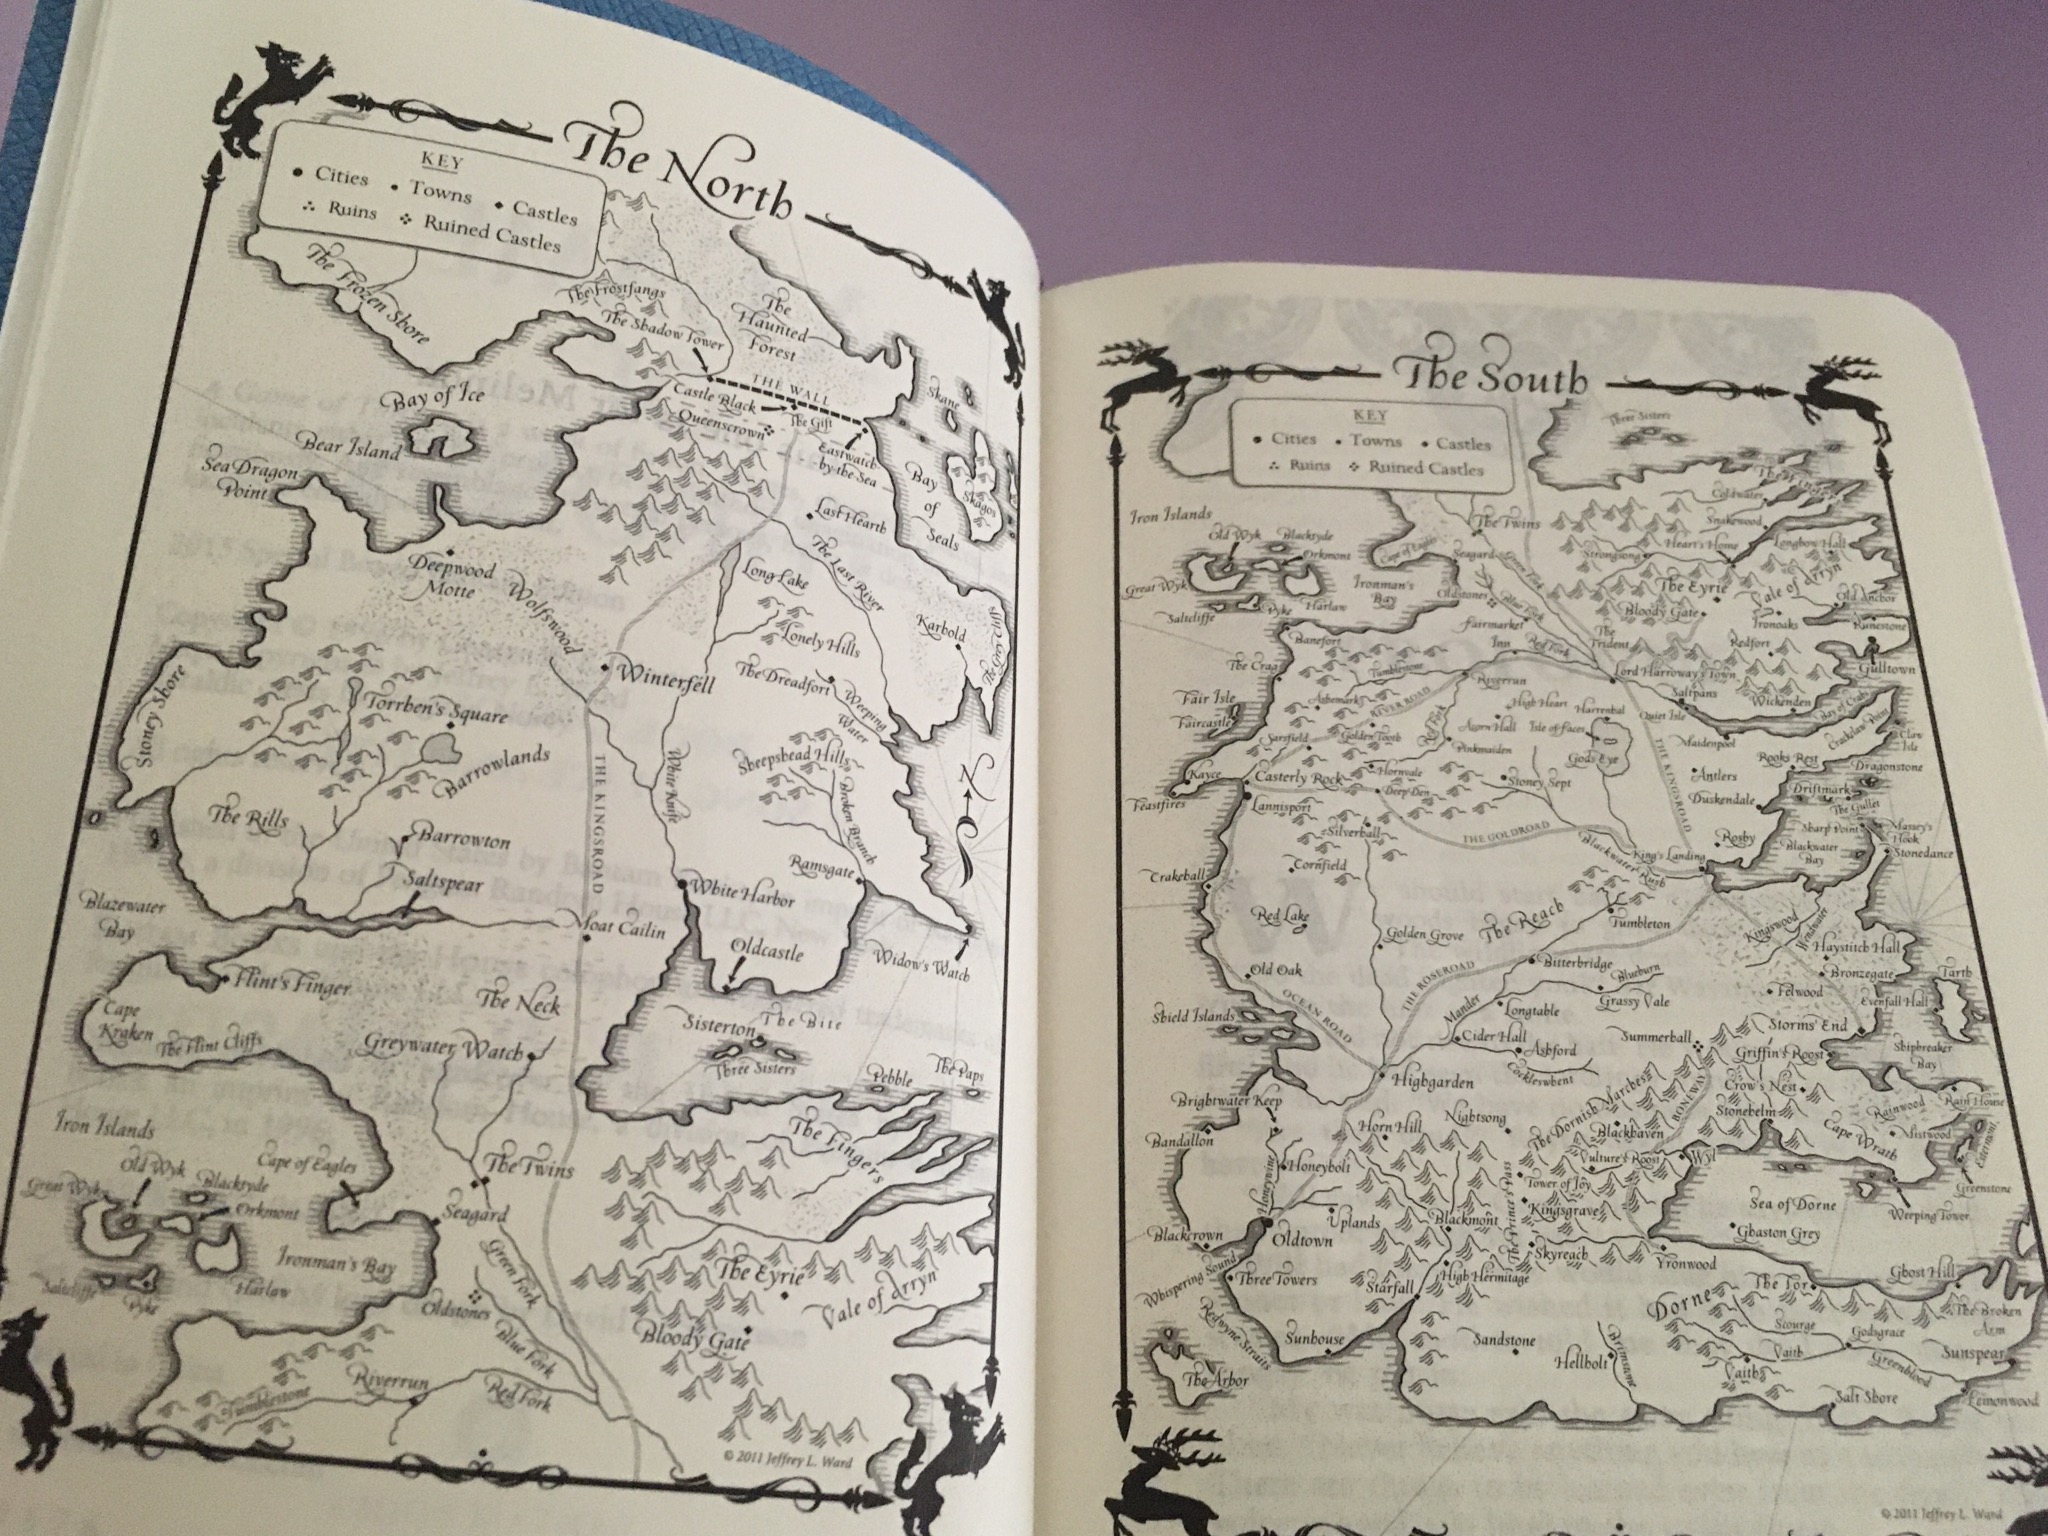 The North
KEY
Cities Towns Castles
Ruins Ruined Castles
The Frozen Shore
The Frostfangs
The Shadow Tower
The Haunted Forest
THE WALL
Castle Black
The Gift
Queenscrown
Eastwatch-by-the-Sea
Skane
Skagos
Bay of Seals
Bay of Ice
Bear Island
Sea Dragon Point
Last Hearth
Deepwood Motte
Wolfswood
Long Lake
The Last River
Karhold
The Grey Cliffs
Lonely Hills
Winterfell
The Dreadfort
Weeping Water
Stoney Shore
Torrhen's Square
Barrowlands
THE KINGSROAD
White Knife
Sheepshead Hills
Broken Branch
The Rills
Barrowton
Ramsgate
Saltspear
White Harbor
Blazewater Bay
Moat Cailin
Oldcastle
Widow's Watch
Flint's Finger
The Neck
Cape Kraken
The Flint Cliffs
Greywater Watch
Sisterton
The Bite
Three Sisters
Pebble
The Paps
Iron Islands
The Fingers
Old Wyk
Cape of Eagles
The Twins
Great Wyk
Blacktyde
Orkmont
Seagard
Ironman's Bay
Green Fork
The Eyrie
Vale of Arryn
Saltcliffe
Pyke
Harlaw
Oldstones
Blue Fork
Bloody Gate
Riverrun
Red Fork
Tumblestone
© 2011 Jeffrey L. Ward
The South
KEY
Cities Towns Castles
Ruins Ruined Castles
Three Sisters
The Fingers
Coldwater
Iron Islands
The Twins
Snakewood
Old Wyk
Blacktyde
Orkmont
Cape of Eagles
Seagard
Green Fork
Strongsong
Heart's Home
Longbow Hall
Great Wyk
Ironman's Bay
Oldstones
Blue Fork
The Eyrie
Vale of Arryn
Old Anchor
Saltcliffe
Pyke
Harlaw
Fairmarket
Bloody Gate
Ironoaks
Runestone
Banefort
Inn
Red Fork
The Trident
Redfort
Gulltown
The Crag
Tumblestone
Riverrun
Lord Harroway's Town
Fair Isle
Faircastle
Ashemark
RIVER ROAD
High Heart
Harrenhal
Saltpans
Wickenden
Quiet Isle
Bay of Crabs
Sarsfield
Golden Tooth
Red Fork
Acorn Hall
Isle of Faces
Pinkmaiden
Gods Eye
THE KINGSROAD
Maidenpool
Crackclaw Point
Claw Isle
Kayce
Casterly Rock
Hornvale
Stoney Sept
Antlers
Rooks Rest
Dragonstone
Feastfires
Lannisport
Deep Den
Duskendale
Driftmark
The Gullet
Silverhall
THE GOLDROAD
Blackwater Rush
King's Landing
Rosby
Sharp Point
Massey's Hook
Blackwater Bay
Stonedance
Cornfield
Crakehall
Red Lake
Golden Grove
The Reach
Tumbleton
Kingswood
Wendwater
Haystitch Hall
Old Oak
OCEAN ROAD
THE ROSEROAD
Bitterbridge
Blueburn
Bronzegate
Tarth
Mander
Longtable
Grassy Vale
Felwood
Evenfall Hall
Shield Islands
Cider Hall
Ashford
Summerhall
Storms' End
Cockleswhent
Griffin's Roost
Shipbreaker Bay
Highgarden
Crow's Nest
Brightwater Keep
Horn Hill
Nightsong
The Dornish Marches
BONEWAY
Stonehelm
Rainwood
Rain House
Bandallon
Blackhaven
Cape Wrath
Mistwood
Estermont
Honeyholt
Vulture's Roost
Wyl
Greenstone
Honeywine
Tower of Joy
The Prince's Pass
Kingsgrave
Sea of Dorne
Weeping Tower
Blackcrown
Uplands
Blackmont
Oldtown
Skyreach
Ghaston Grey
Yronwood
Whispering Sound
Three Towers
Starfall
High Hermitage
The Tor
Ghost Hill
Redwyne Straits
Dorne
The Broken Arm
Sunhouse
Sandstone
Scourge
Godsgrace
Sunspear
Hellholt
Brimstone
Vaith
Vaith
Greenblood
The Arbor
Salt Shore
Lemonwood
© 2011 Jeffrey L. Ward